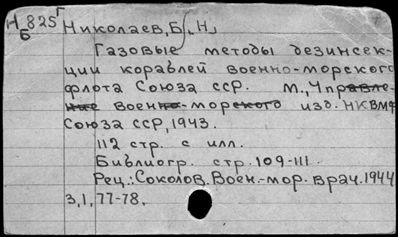 Н 825 Г
Б
Николаев, Б. Н.
Газовые методы дезинсек-
ции кораблей военно-морского
флота Союза ССР. М., Управле-
ние военно-морского изд. НКВМФ
Союза ССР, 1943.
112 стр. с илл.
Библиогр. стр. 109-111.
Рец.: Соколов. Воен.-мор. врач. 1944
3,1,77-78.